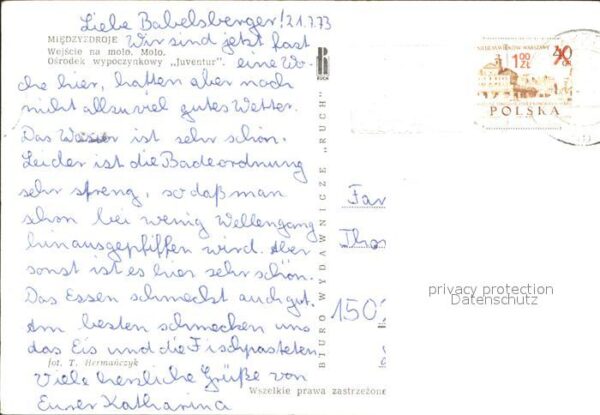 Liebe Babelsberger! 21.7.73
MIĘDZYZDROJE
Wejście na molo. Molo.
Ośrodek wypoczynkowy „Juventur".
Wir sind jetzt fast
eine Wo-
che hier, hatten aber noch
nicht allzuviel gutes Wetter.
Das Wasser ist sehr schön.
Leider ist die Badeordnung
sehr streng, so daß man
schon bei wenig Wellengang
hinausgepfiffen wird. Aber
sonst ist es hier sehr schön.
Das Essen schmeckt auch gut.
Am besten schmecken uns
das Eis und die Fischpasteten.
fot. T. Hermańczyk
Viele herzliche Grüße von
Eurer Katharina
RUCH
BIURO WYDAWNICZE „RUCH"
Wszelkie prawa zastrzeżone
1,00
ZŁ
40
GR
POLSKA
Fam
Tho
150
privacy protection
Datenschutz